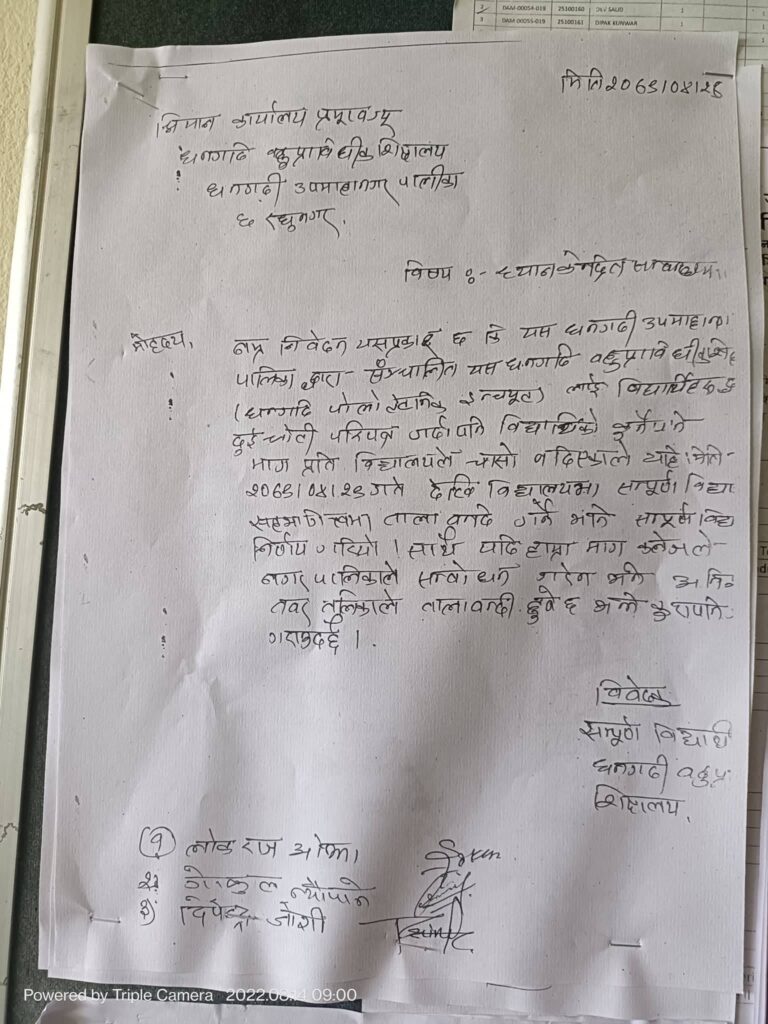 2 DAM-00054-019 25100160 DEV SAUD 1
3 DAM-00055-019 25100161 DIPAK KUNWAR 1
मिति २०७९/०४/२९
श्रिमान कार्यालय प्रमूख ज्यू
धनगढि बहुप्राविधीक शिक्षालय
धनगढी उपमहानगर पालीका
विषय :- ध्यानकेन्द्रित सम्बन्धमा।
मोहदय,
नम्र निवेदन यसप्रकार छ कि यस धनगढी उपमहान
पालिका द्वारा सञ्चालित यस धनगढि बहुप्राविधी
(धनगढि पोलो टेक्निक लाई विद्यार्थीहरु
दुई चोटी परिपत्र गर्दा पनि विद्यार्थिको कुनै पनि
माग प्रति विद्यालयले चासो नदिएकाले यहि मिति
गते देखि विद्यालयमा सम्पूर्ण विद्या
सहभागित्वमा ताला बन्दि गर्ने भन्ने सम्पूर्ण विद्य
निर्णय गरियो । साथै यदि हाम्रा माग कलेजले
नगरपालिकाले सम्बोधन गरेन भने
तालाबन्दी हुने छ भन्ने कुरा पनि
गराउदछौ ।
निवेदक
सम्पूर्ण विद्यार्थी
धनगढी बहुप्रा
शिक्षालय.
(१) लोक राज ओझा
२) गोकुल न्यौपाने
३) दिपेन्द्र जोशी
Powered by Triple Camera 2022.08.14 09:00